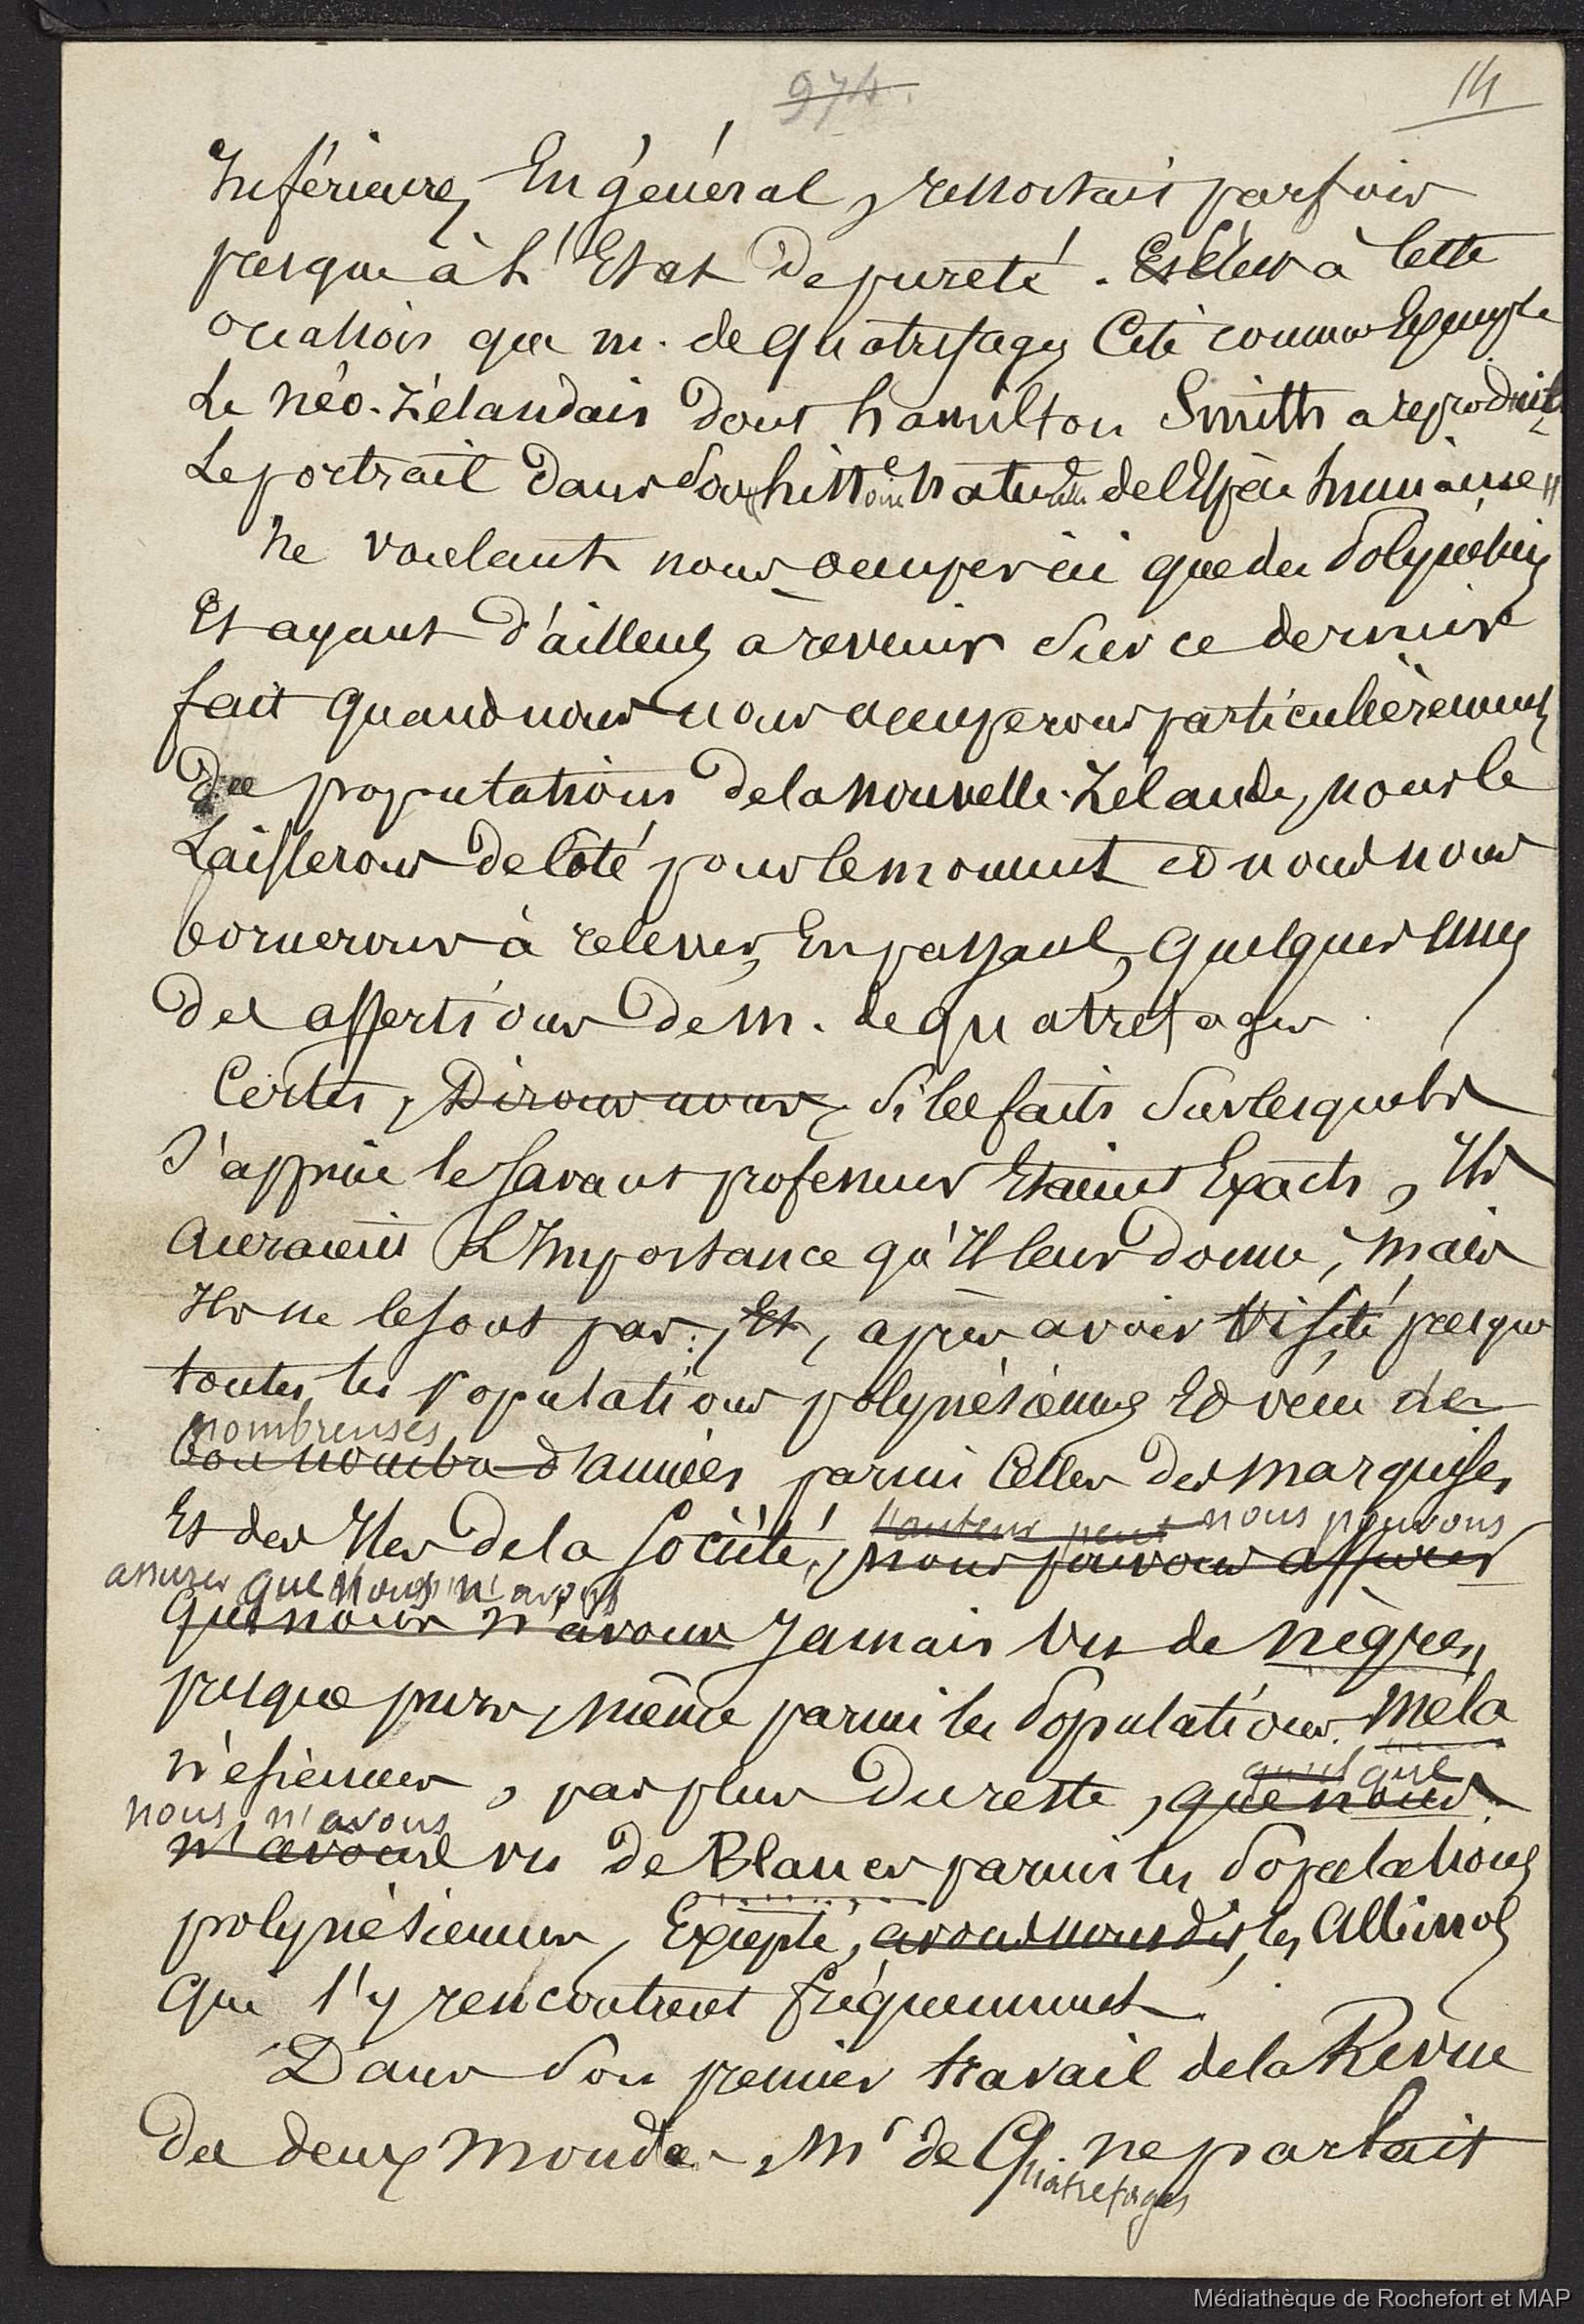 974.
14
Inférieure, En général, ressortait parfois
presque à l'Etat de pureté. Et C'est à Cette
occasion que m. de Quatrefages Cite comme Exemple
Le néo-Zélandais dont hamilton Smith a reproduit
Le portrait dans Son histoire naturelle de l'Espèce humaine "
Ne voulant nous occuper ici que des Polynésiens
Et ayant d'ailleurs à revenir Sur ce dernier
fait quand nous nous occuperons particulièrement
des populations de la nouvelle-Zélande, nous le
Laisserons de Coté pour le moment et nous nous
bornerons à relever, En passant, quelques unes
des assertions de m. de quatrefages.
Certes, Dirons nous, Si les faits Sur lesquels
S'appuie le Savant professeur Etaient Exacts, Ils
auraient L'Importance qu'Il leur donne, mais
Ils ne le sont pas: Et, après avoir visité presque
toutes les populations polynésiennes Et vécu de
nombreuses
bon nombre d'années parmi Celles des marquises
Et des Iles de la Société, l'auteur peut nous pouvons
nous pouvons assurer
assurer que nous n'avons
que nous n'avons Jamais vu de nègres,
presque purs, même parmi les Populations méla
nésiennes, pas plus du reste, qu'il que
que nous
nous n'avons
n'avons vu de Blancs parmi les Populations
polynésiennes, Excepté, avons nous dit, les Albinos
qui s'y rencontrent fréquemment.
Dans Son premier travail de la Revue
des deux mondes, Mr de Quatrefages ne parlait
Médiathèque de Rochefort et MAP